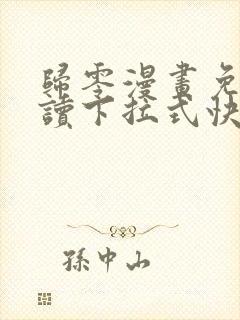 歸零漫畫免
讀下拉式快
孫中山